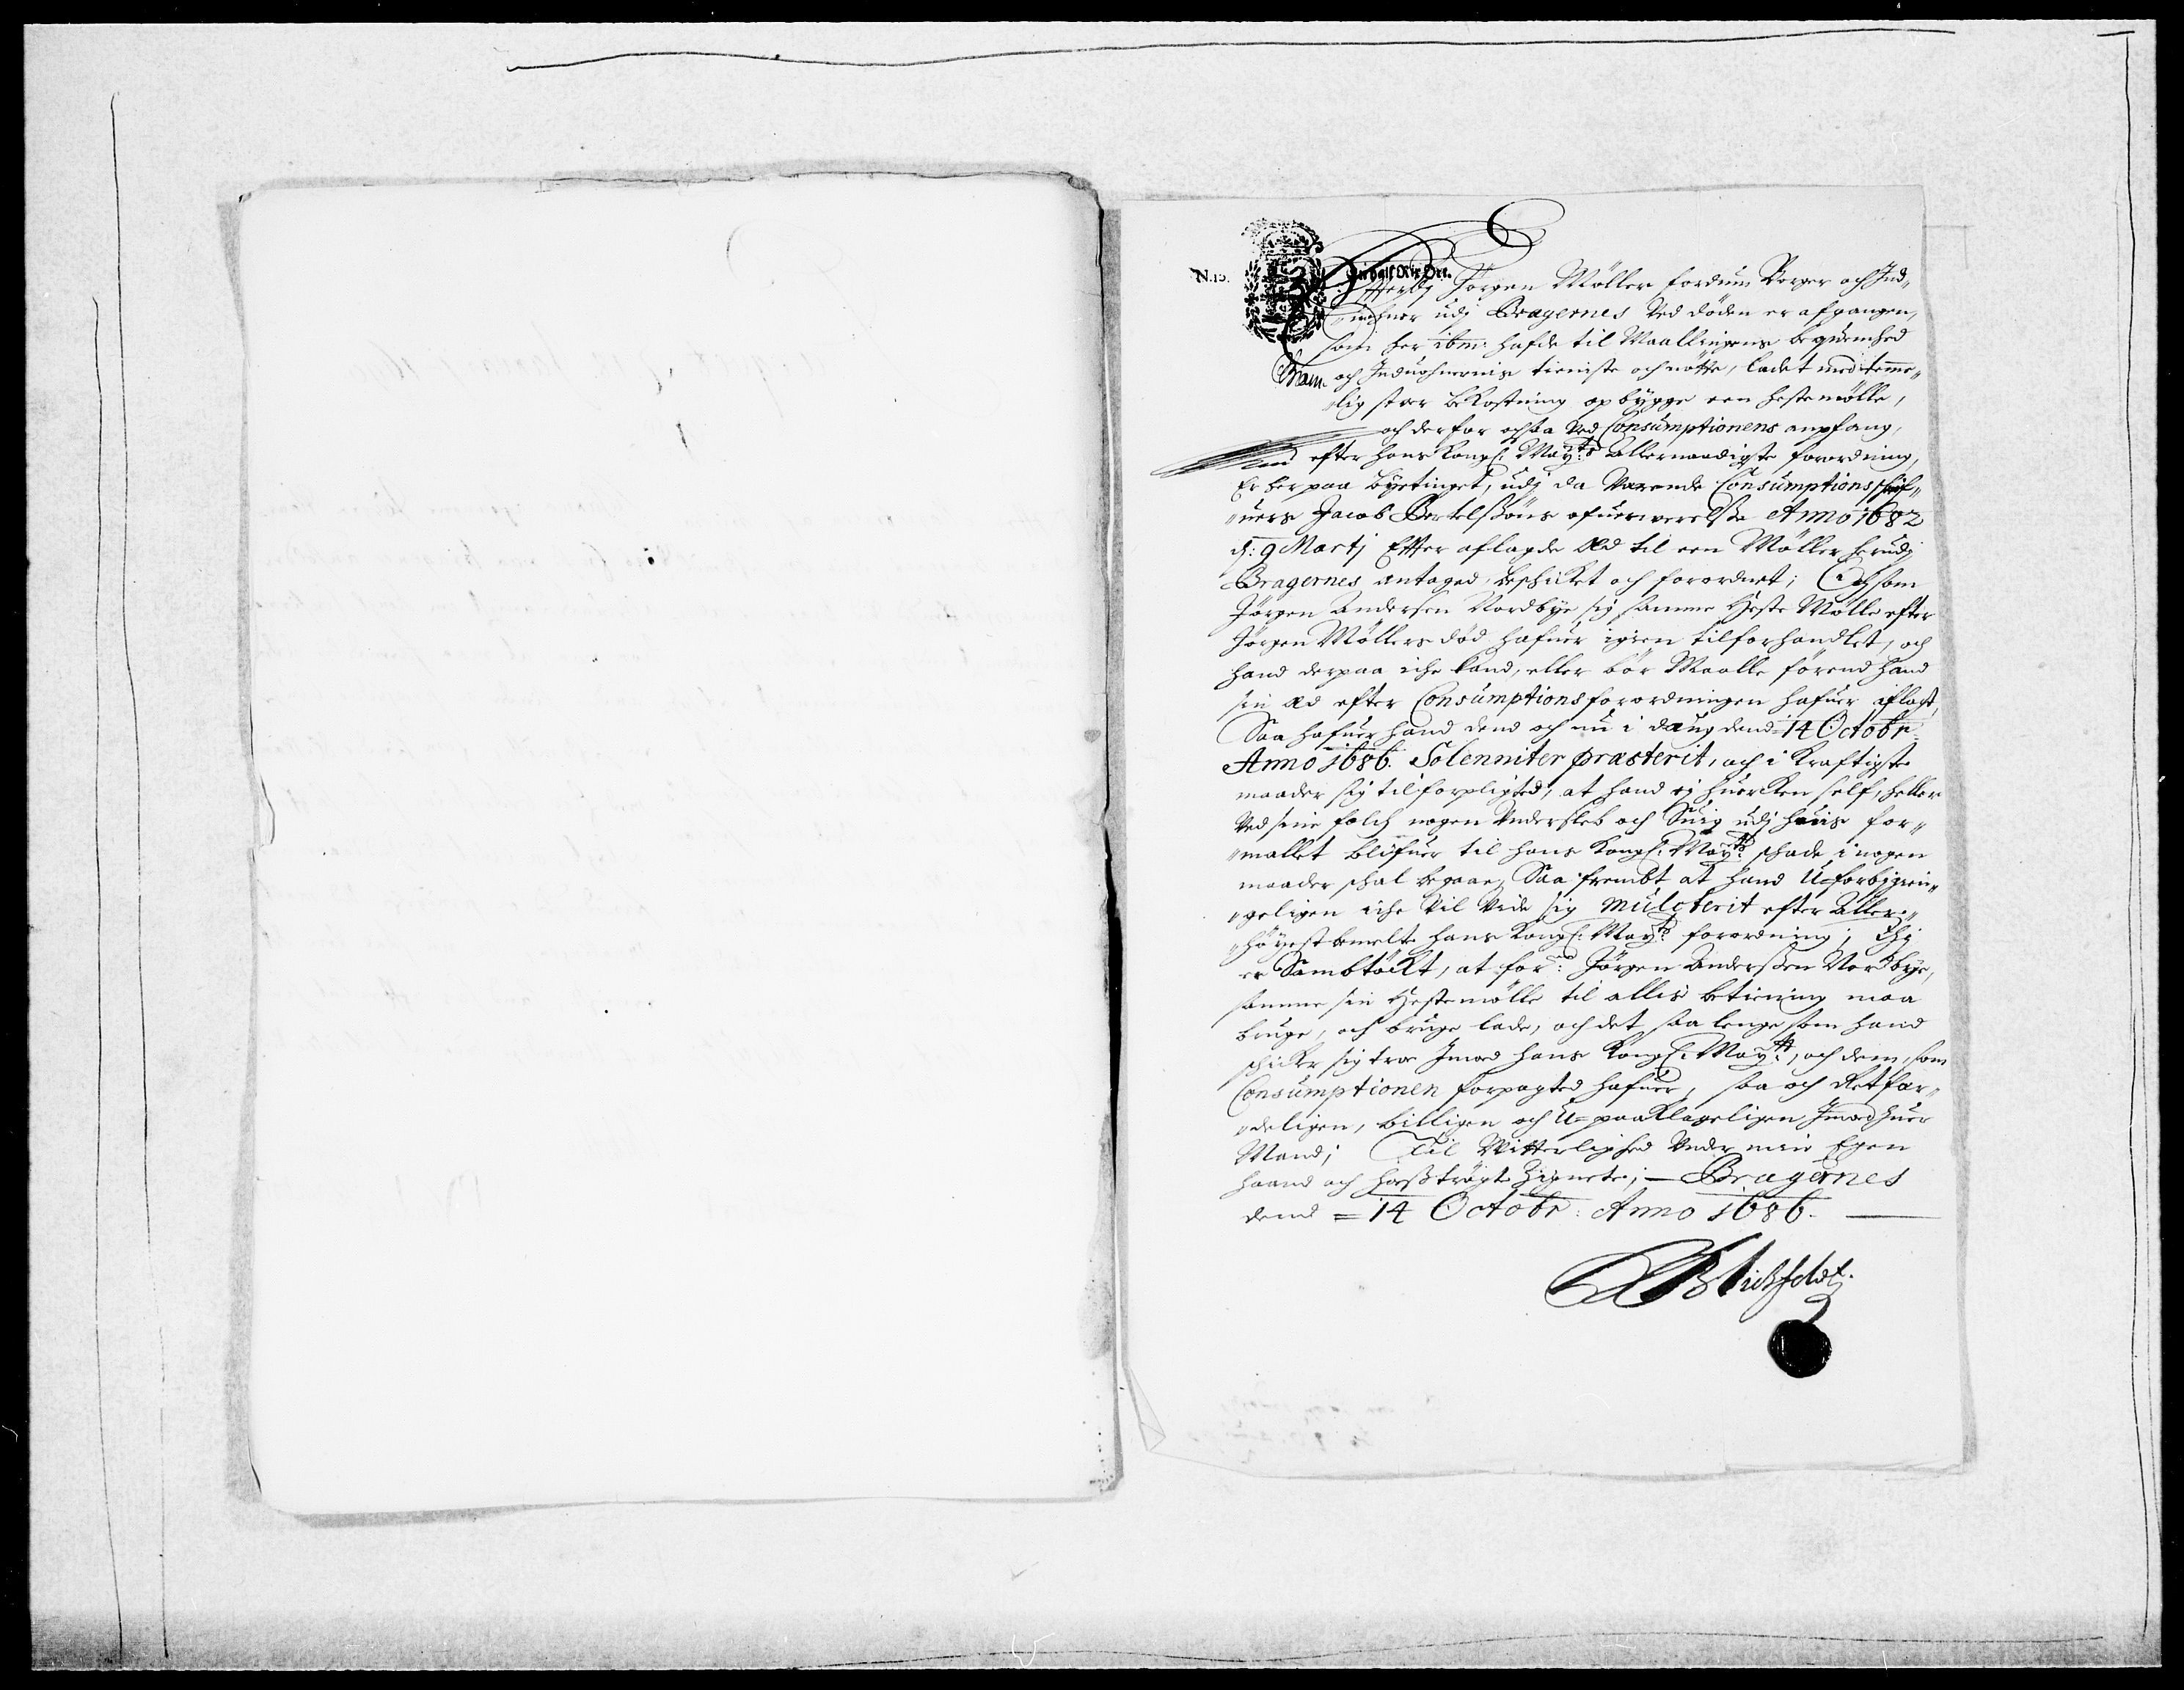 N.15.
En halff Rix Ort.
Effterdj Jörgen Möller fordum Borger och Ind„
„vohner udj Bragernes ved döden er afgangen,
som her ibm: hafde til Maallingens beqvemhed
och Induohnernis tieniste och nötte, ladet med temme„
„lig stoer bekostning opbÿgge een hestemölle,
och derfor ochsaa ved Consumptionens anpfang,
efter hans Kongl: Maÿ:ts Allernaadigste forordning,
Er her paa Bÿetinget, udj da Værende Consumptions skrif„
„uers Jacob Bertelsøns ofuerverelse Anno 1682
d: 9 Martj Efter aflagde Æd til een Möller herudj
Bragernes antaged, beskicket och forordnet; Och som
Jörgen Andersen Nordbÿe, sig samme Heste Mölle efter
Jörgen Möllers död hafuer igien tilforhandlet, och
hand derpaa iche kand, eller bör Maalle förend hand
sin Æd efter Consumptions forordningen hafuer aflagt,
Saa hafuer hand dend och nu i daug dend 14 Octobr:
Anno 1686. Solenniter præsterit, och i Kraftigste
maader sig tilforpligted, at hand ej huercken self, heller
ved sine folch nogen Undersleb och Suig udj huis for„
„mallet blifuer til hans Kongl: Maÿ:ts schade i nogen
maader schal begaae, Saa frembt at hand U-forbigien„
„geligen iche vil vide sig mulcterit efter Aller„
„höÿestbemelte hans Kongl: Maÿ:ts forordning; Thj
er Sambtÿckt, at for:ne Jörgen Andersen Nordbÿe,
samme sin Hestemölle til allis betiening maa
bruge, och bruge lade, och det saa lenge som hand
schicker sig troe Imod hans Kongl: Maÿ:tt, och dem, som
Consumptionen forpagted hafuer, saa och Retfær„
„deligen, billigen och U-paaklageligen Imod huer
Mand; Til Vitterlighed Under min Egen
haand och hostrÿgte Zignete; — Bragernes
dend = 14 Octobr: Anno 1686. —
Blichfeldt.